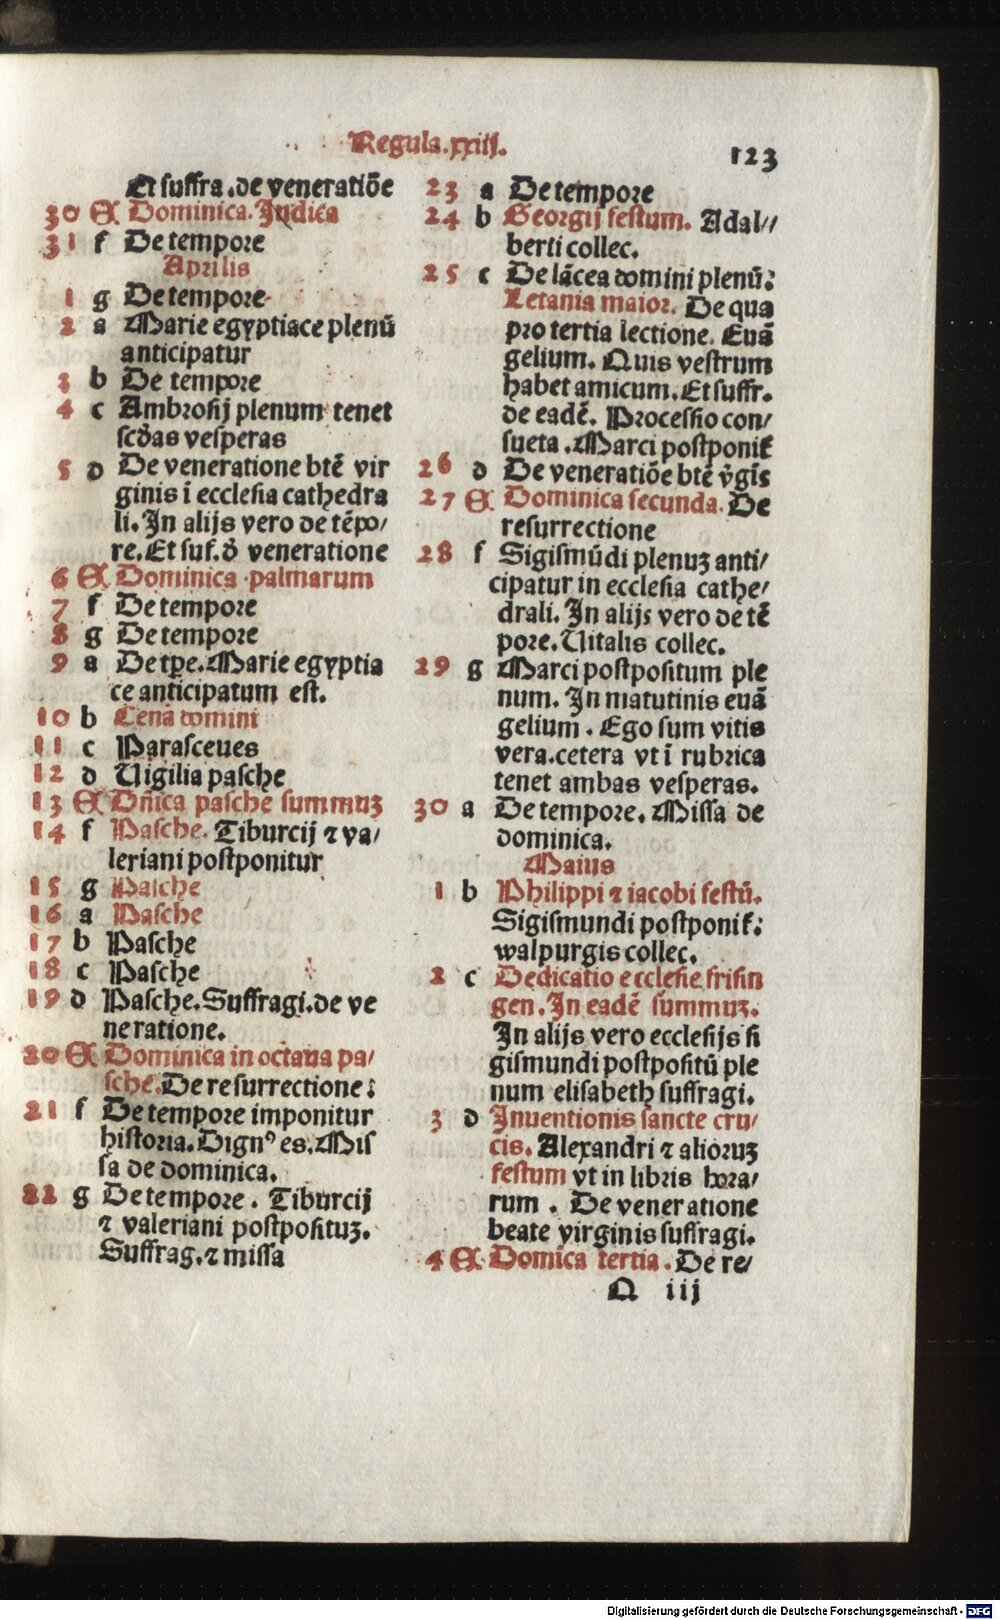 Regula.xxiij.
123
Et suffra.de veneratiōe
30 E Dominica.Judica
31 f De tempore
Aprilis
1 g De tempore
2 a Marie egyptiace plenū
anticipatur
3 b De tempore
4 c Ambrosij plenum tenet
scd̄as vesperas
5 d De veneratione btē vir
ginis ī ecclesia cathedra
li. In alijs vero de tēpo/
re. Et suf.d̄ veneratione
6 E Dominica palmarum
7 f De tempore
8 g De tempore
9 a De tp̄e. Marie egyptia
ce anticipatum est.
10 b Cena domini
11 c Parasceues
12 d Uigilia pasche
13 E Dn̄ica pasche summuʒ
14 f Pasche. Tiburcij ⁊ va/
leriani postponitur
15 g Pasche
16 a Pasche
17 b Pasche
18 c Pasche
19 d Pasche. Suffragi.de ve
neratione.
20 E Dominica in octaua pa/
sche. De resurrectione:
21 f De tempore imponitur
historia. Dignꝰ es. Mis
sa de dominica.
22 g De tempore. Tiburcij
⁊ valeriani postposituʒ.
Suffrag.⁊ missa
23 a De tempore
24 b Georgij festum. Adal//
berti collec.
25 c De lācea domini plenū:
Letania maior. De qua
pro tertia lectione. Euā
gelium. Quis vestrum
habet amicum. Et suffr.
de eadē. Processio con/
sueta. Marci postponiť
26 d De veneratiōe btē v̄gīs
27 E Dominica secunda. De
resurrectione
28 f Sigismūdi plenuʒ anti/
cipatur in ecclesia cathe/
drali. In alijs vero de tē
pore. Uitalis collec.
29 g Marci postpositum ple
num. In matutinis euā
gelium. Ego sum vitis
vera.cetera vt ī rubrica
tenet ambas vesperas.
30 a De tempore. Missa de
dominica.
Maius
1 b Philippi ⁊ iacobi festū.
Sigismundi postponiť:
walpurgis collec.
2 c Dedicatio ecclesie frisin
gen. In eadē summuʒ.
In alijs vero ecclesijs si
gismundi postpositū ple
num elisabeth suffragi.
3 d Inuentionis sancte cru/
cis. Alexandri ⁊ alioruʒ
festum vt in libris hora/
rum. De veneratione
beate virginis suffragi.
4 E Domica tertia. De re/
Q iij
Digitalisierung gefördert durch die Deutsche Forschungsgemeinschaft - DFG